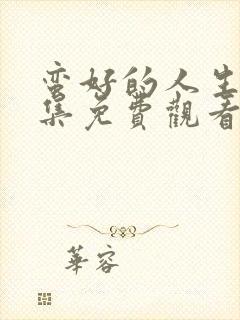 蛮好的人生
集免費觀看
華容